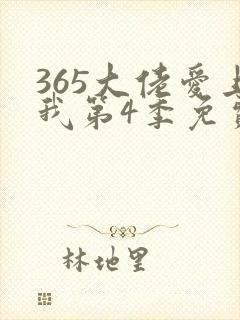 365大佬爱上
我第4季免费
林地里